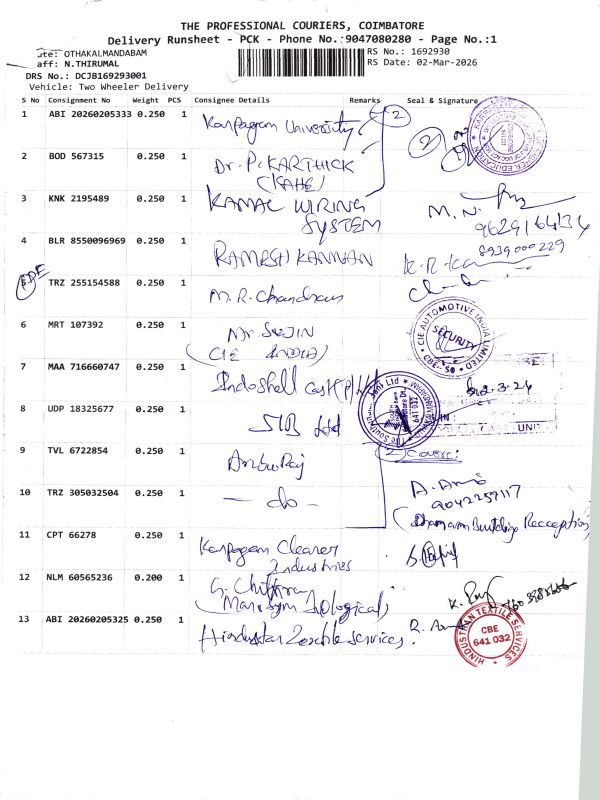 THE PROFESSIONAL COURIERS, COIMBATORE
Delivery Runsheet - PCK - Phone No.:9047080280 - Page No.:1
ute: OTHAKALMANDABAM
RS No.: 1692930
aff: N.THIRUMAL
RS Date: 02-Mar-2026
DRS No.: DCJB169293001
Vehicle: Two Wheeler Delivery
S No Consignment No Weight PCS Consignee Details Remarks Seal & Signature
1 ABI 20260205333 0.250 1 Karpagam University 2 2
2 BOD 567315 0.250 1 Dr. P. KARTHICK
(KAHE)
3 KNK 2195489 0.250 1 KAMAL WIRING
SYSTEM
M. N.
9629164134
4 BLR 8550096969 0.250 1 RAMESH KANNAN
8939000229
5 TRZ 255154588 0.250 1 M. R. Chandran
6 MRT 107392 0.250 1 Mr. SUJIN
(CIE INDIA)
CIE AUTOMOTIVE INDIA LIMITED
SECURITY
CBE- 50
7 MAA 716660747 0.250 1 Indoshell Cast (P) Ltd
2-3-26
8 UDP 18325677 0.250 1 SIB Ltd
641 032
UNIT
9 TVL 6722854 0.250 1 Anbu Raj
2 Covers:
10 TRZ 305032504 0.250 1 — do —
A. 
9042257117
11 CPT 66278 0.250 1 Karpagam Cleaner
Industries
12 NLM 60565236 0.200 1 G. Chithra
13 ABI 20260205325 0.250 1 Hindustan Textile Services.
HINDUSTRAN TEXTILE SERVICES
CBE
641 032